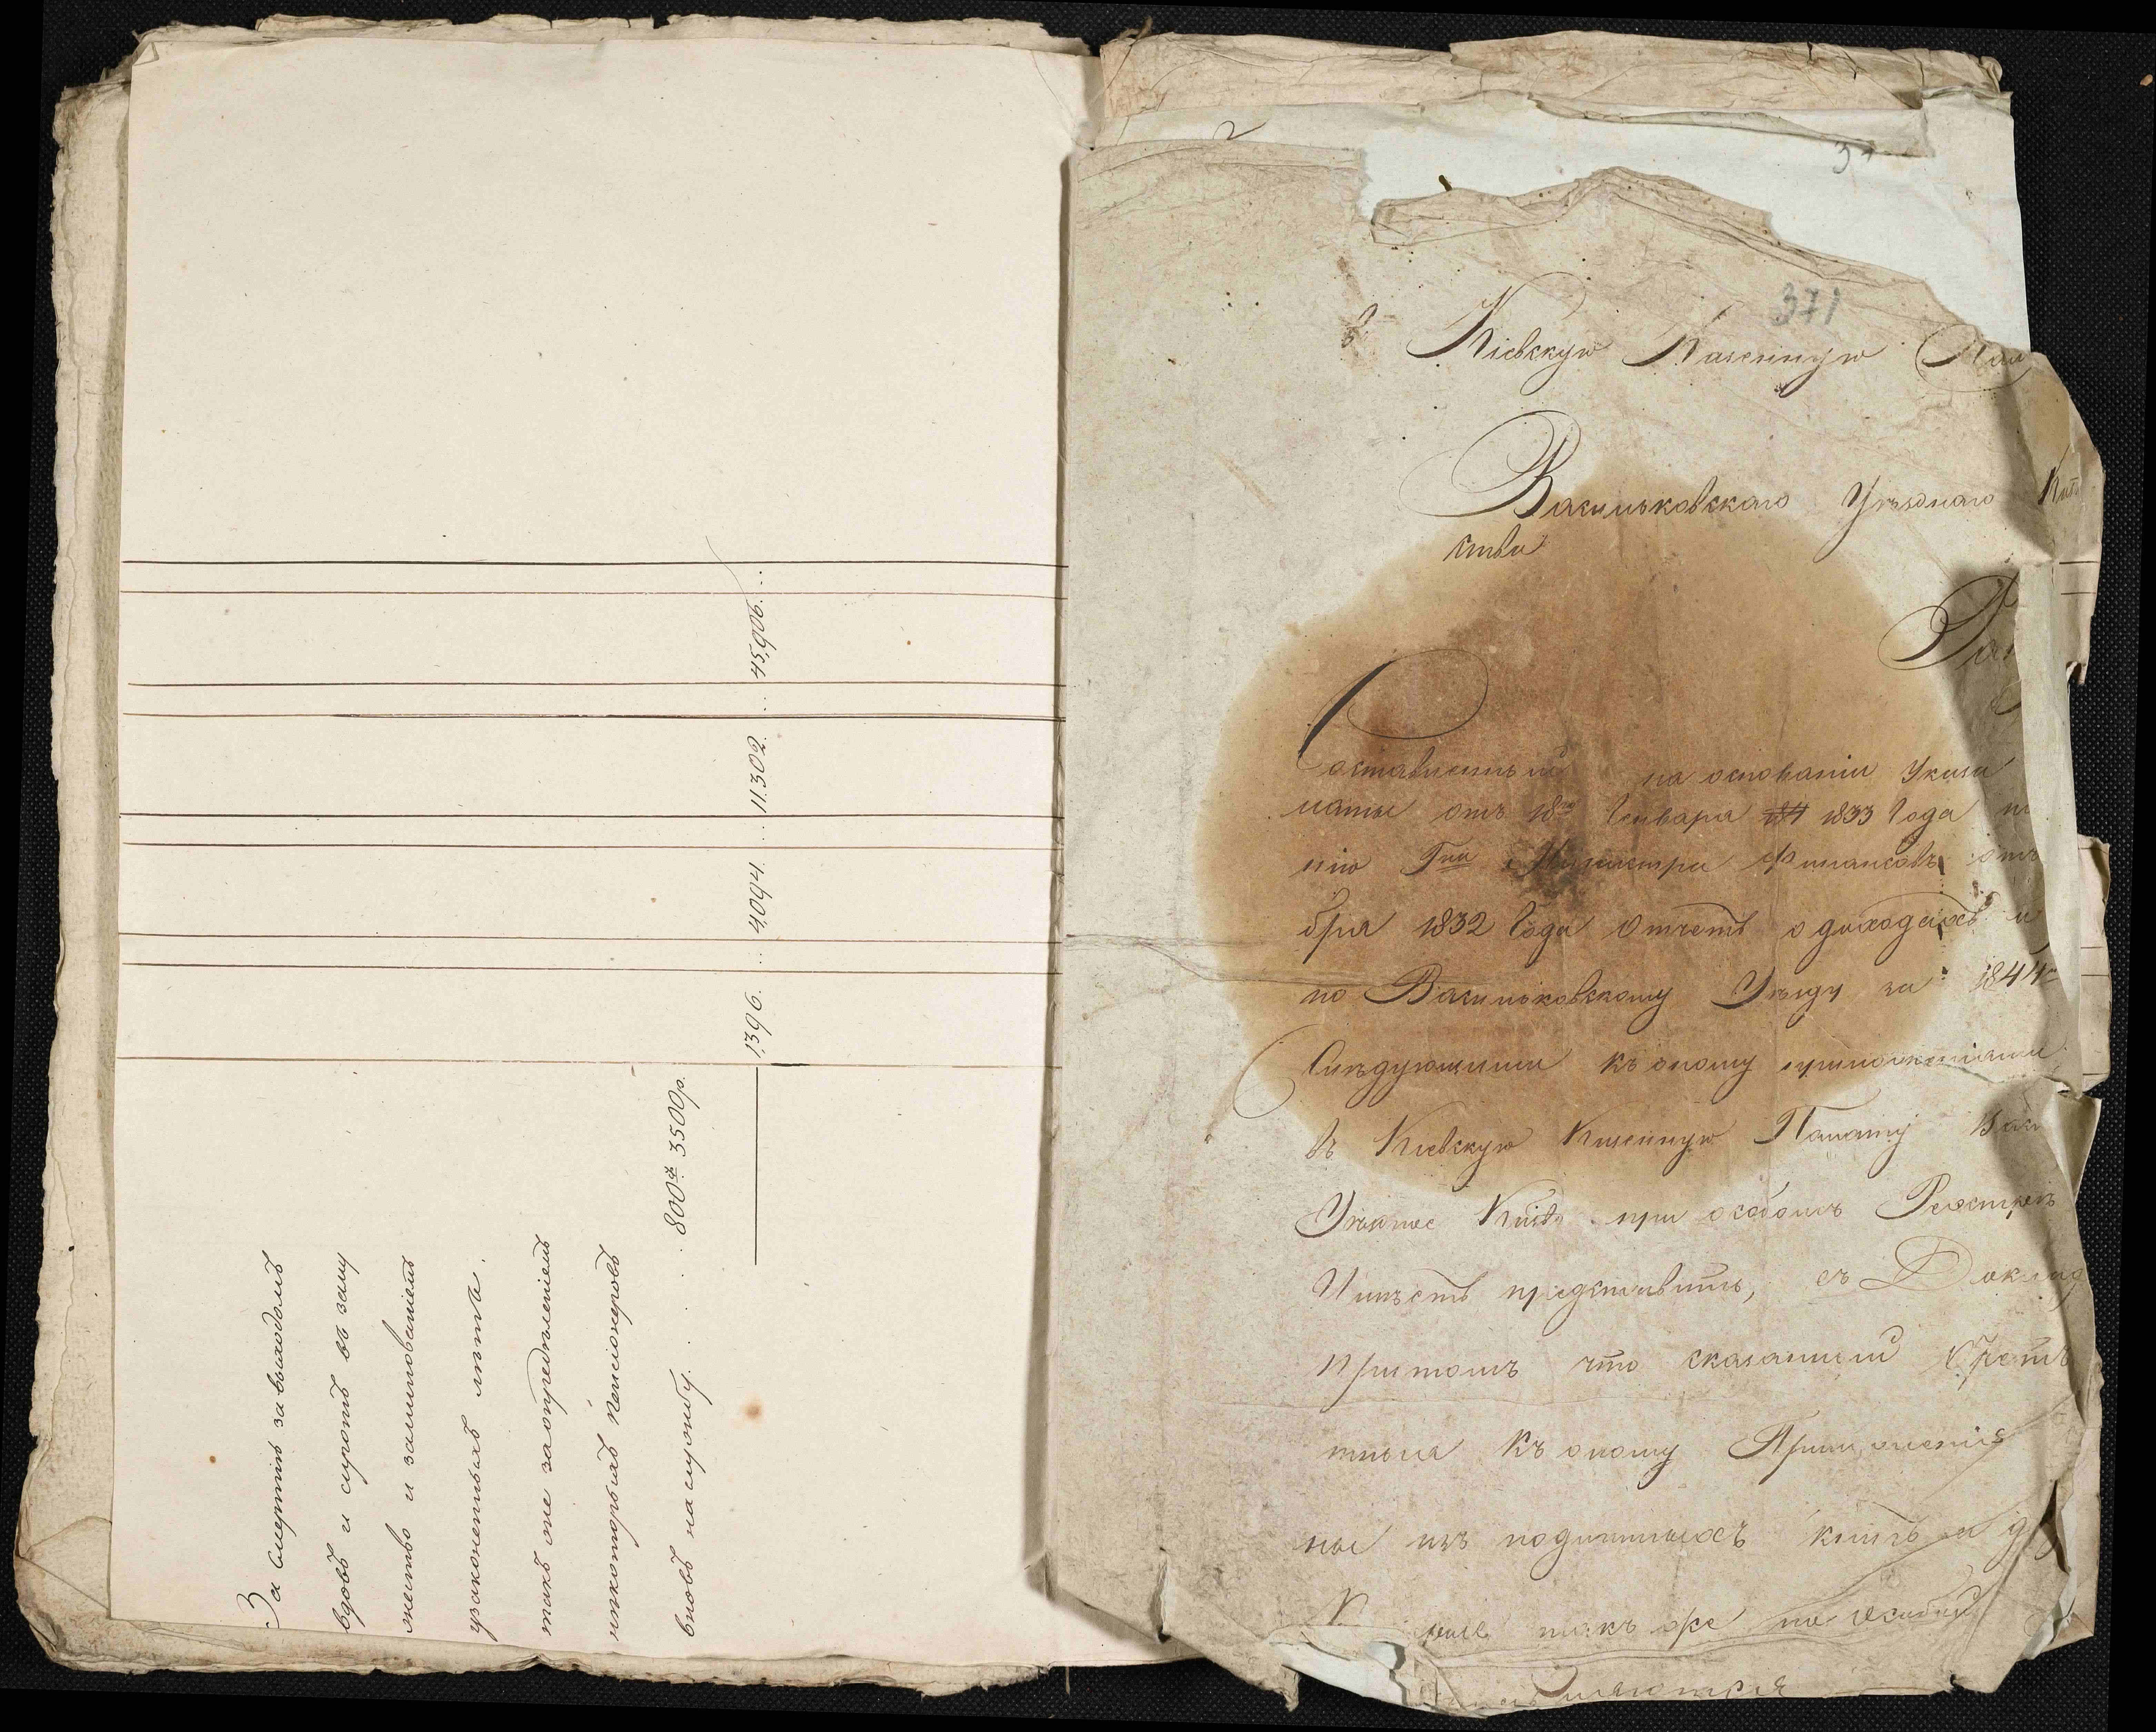 За смертію за выходомъ
вдовъ и сиротъ въ заму
жество и заминованіемъ
узаконенныхъ лѣта.
такъ же за опредѣленіемъ
нѣкоторыхъ Пенсіонеровъ
вновь на службу. . . . 800 ч. 3500р.
1,396. . . 4,094. . . 11,302. . . 45,906. . .
37
371
в Кіевскую Казенную Пал
Васильковскаго Уѣзднаго Каз
ства
Составленный на основаніи Указа
латы отъ 18го Генваря 1833 Года
нію Гна Министра Финансовъ отъ
бря 1832 Года Отчетъ о доходахъ и
по Васильковскому Уѣзду за 1844
Слѣдующими къ оному приложеніями
въ Кіевскую Казенную Палату Вас
Уѣздное Казнво при особомъ Реэстрѣ
Имѣетъ представить, съ Доклад
притомъ что сказанный Отчетъ
тныя къ оному Приложенія
ные изъ подлинныхъ книгъ и д
такъ же